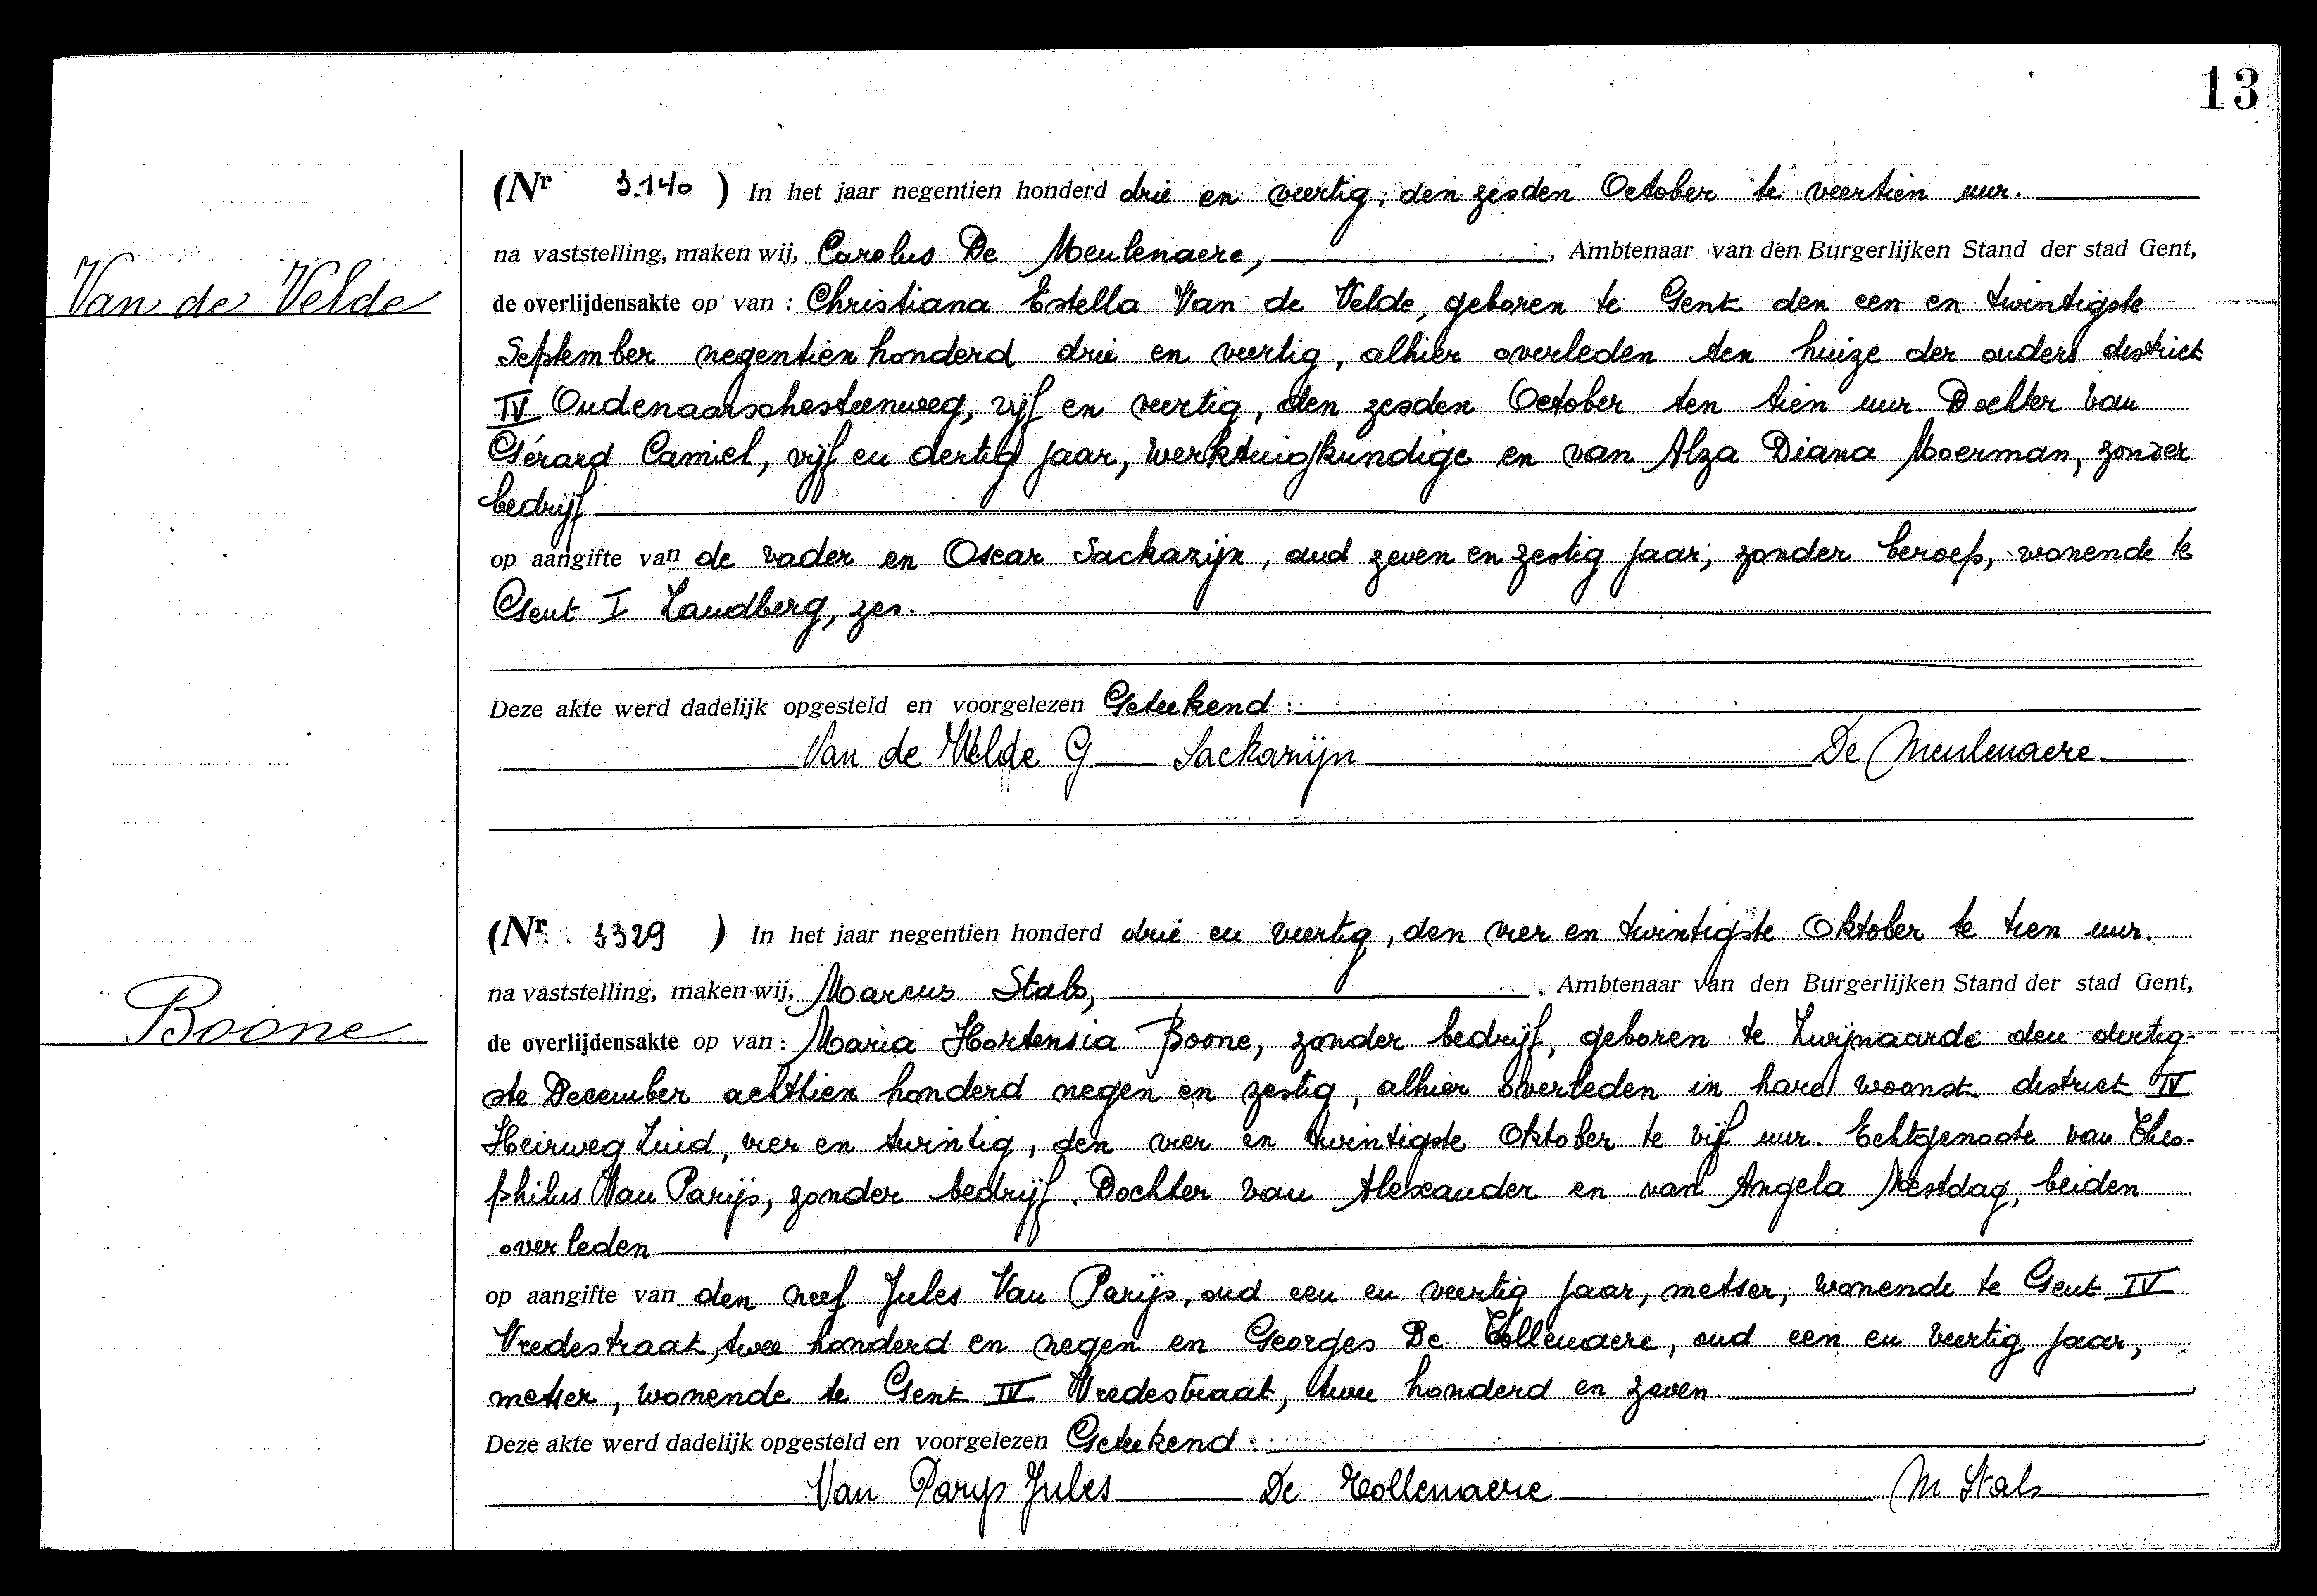 13
(Nr 3.140 ) In het jaar negentien honderd drie en veertig, den zesden October te veertien uur.
na vaststelling, maken wij, Carolus De Meulenaere, , Ambtenaar van den Burgerlijken Stand der stad Gent,
Van de Velde
de overlijdensakte op van : Christiana Estella Van de Velde, geboren te Gent den een en twintigste
September negentien honderd drie en veertig, alhier overleden ten huize der ouders district
IV Oudenaarschesteenweg, vijf en veertig, den zesden October ten tien uur. Dochter van
Gérard Camiel, vijf en dertig jaar, werktuigkundige en van Alza Diana Moerman, zonder
bedrijf
op aangifte van de vader en Oscar Sackazijn, oud zeven en zestig jaar, zonder beroep, wonende te
Gent I Zandberg, zes.
Deze akte werd dadelijk opgesteld en voorgelezen Geteekend :
Van de Velde G. Sackazijn De Meulenaere
(Nr. 3329 ) In het jaar negentien honderd drie en veertig, den vier en twintigste Oktober te tien uur.
na vaststelling, maken wij, Marcus Stals, , Ambtenaar van den Burgerlijken Stand der stad Gent,
Boone
de overlijdensakte op van : Maria Hortensia Boone, zonder bedrijf, geboren te Zwijnaarde den dertig-
ste December achttien honderd negen en zestig, alhier overleden in hare woonst district IV
Heirweg Zuid, vier en twintig, den vier en twintigste Oktober te vijf uur. Echtgenoote van Theo-
philus Van Parijs, zonder bedrijf. Dochter van Alexander en van Angela Mestdag, beiden
overleden
op aangifte van den neef Jules Van Parijs, oud een en veertig jaar, metser, wonende te Gent IV
Vredestraat, twee honderd en negen en Georges De Tollenaere, oud een en veertig jaar,
metser, wonende te Gent IV Vredestraat, twee honderd en zeven.
Deze akte werd dadelijk opgesteld en voorgelezen Geteekend :
Van Parijs Jules De Tollenaere M Stals